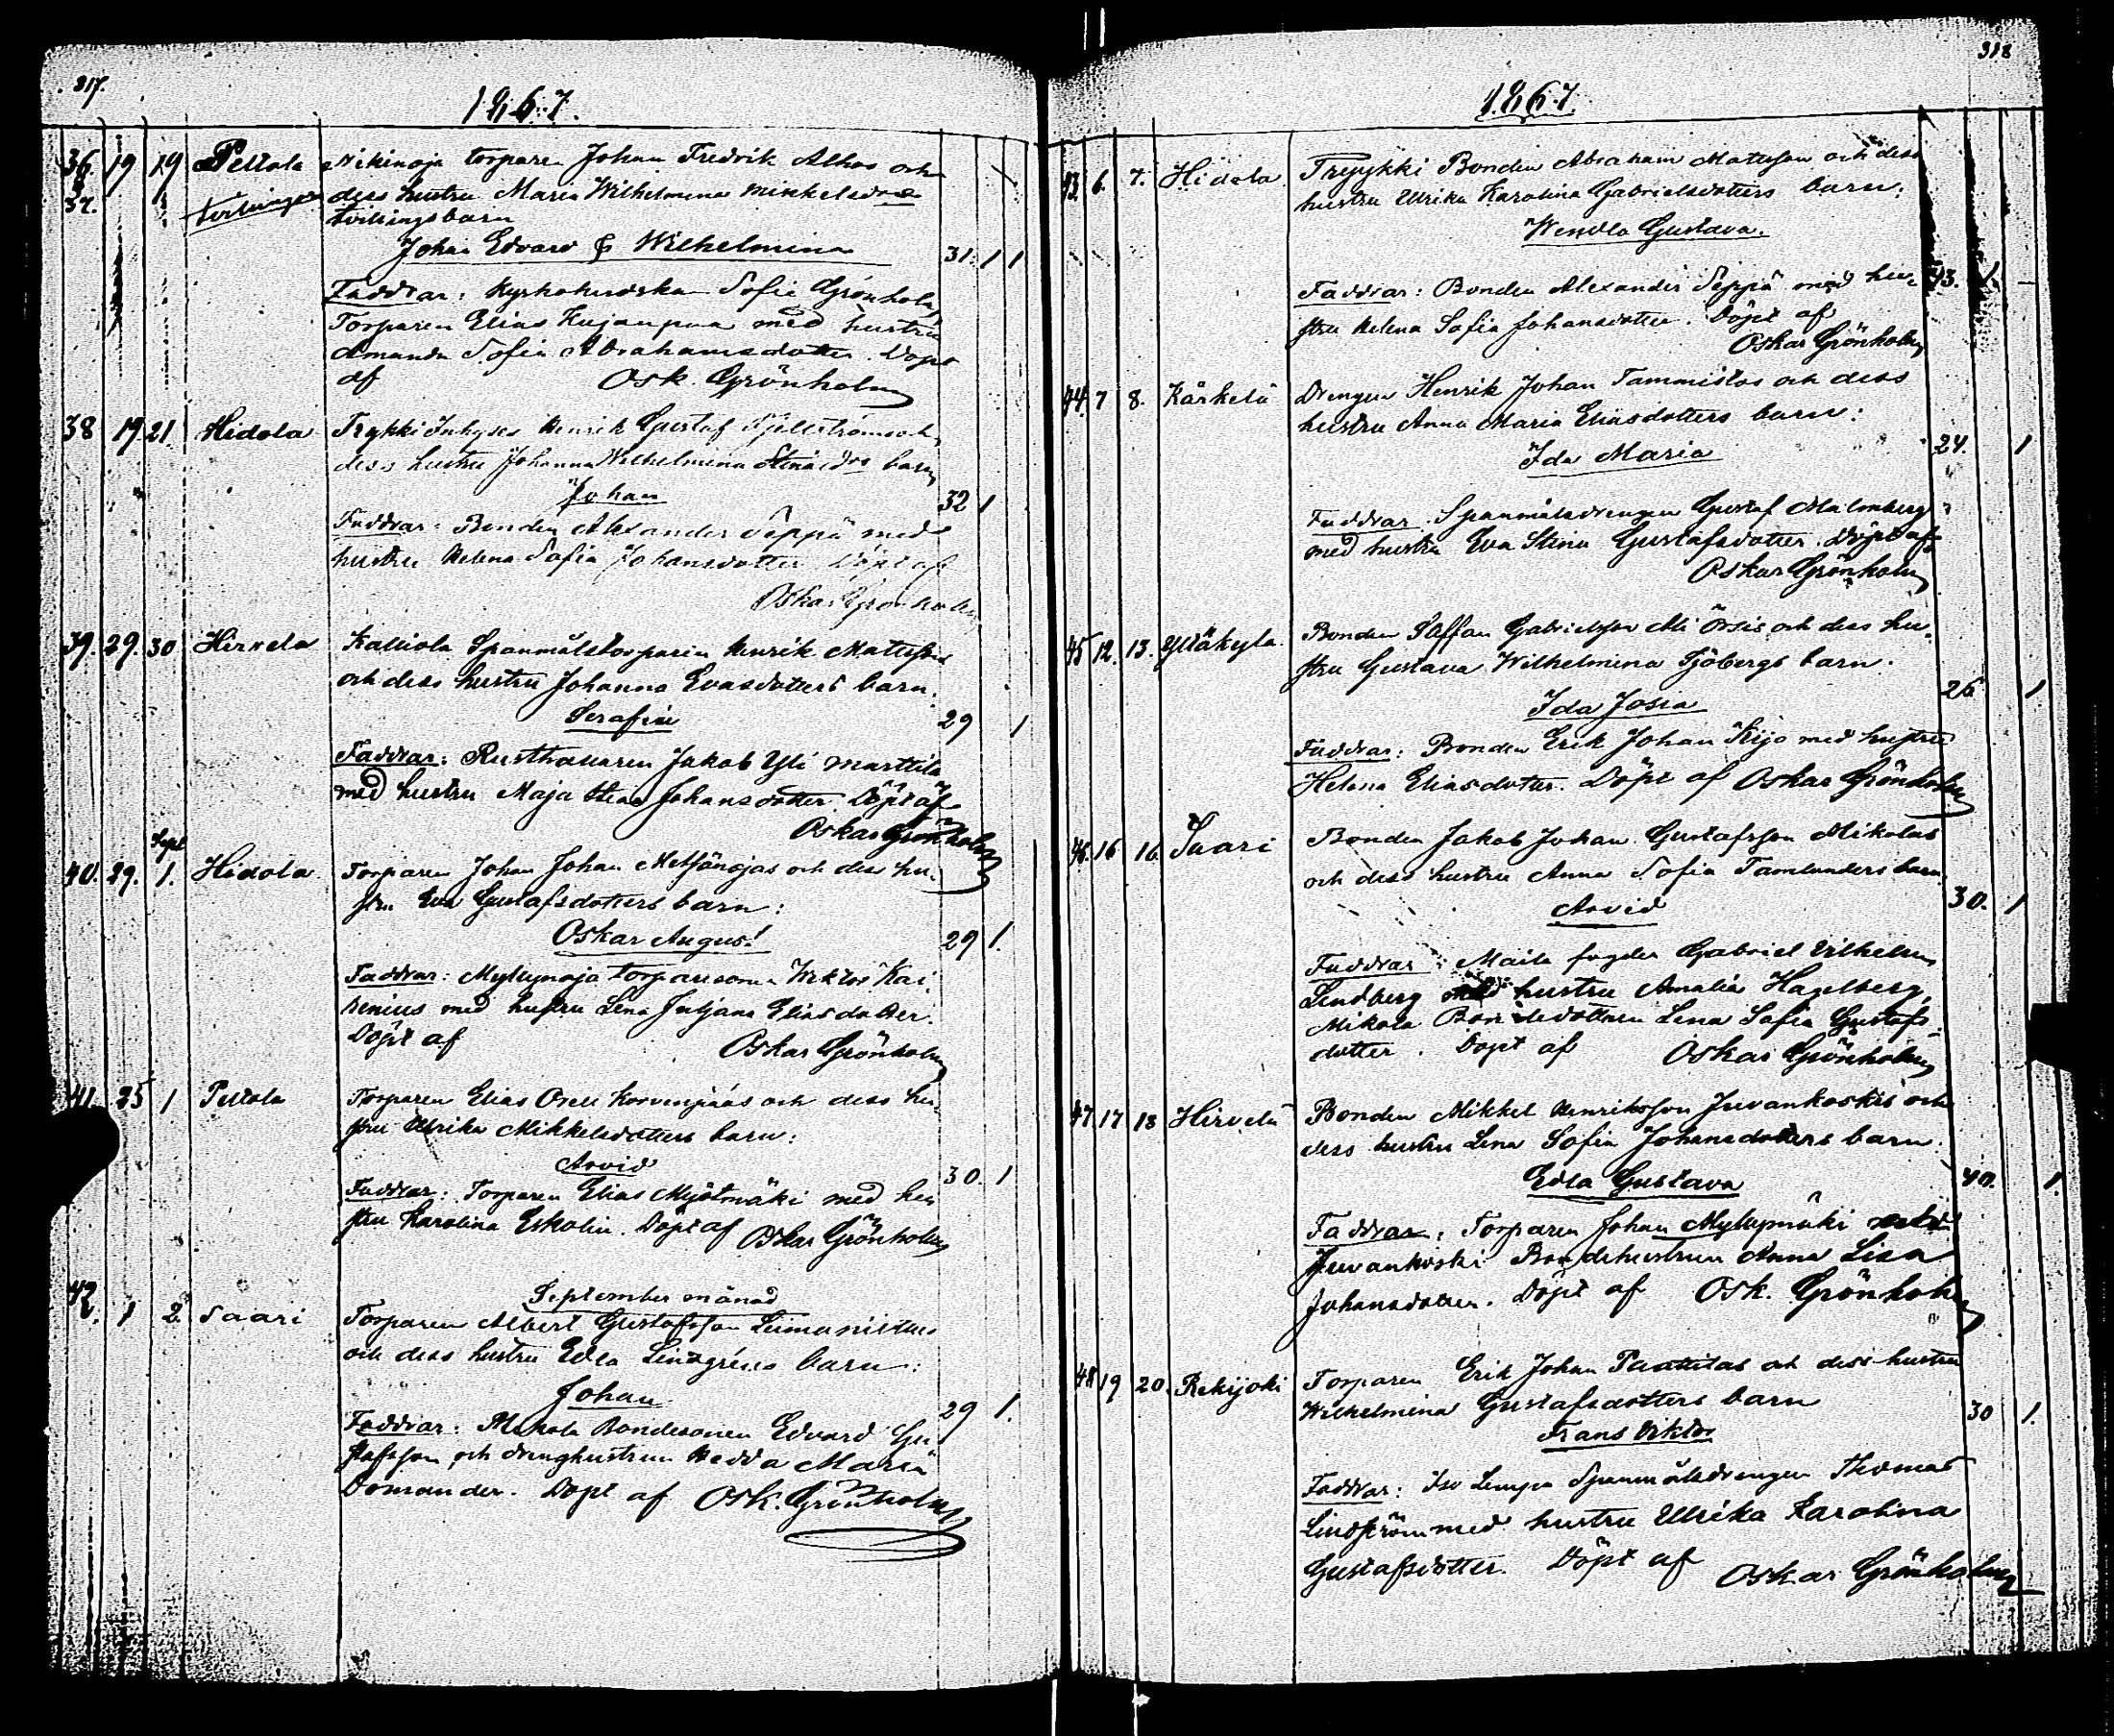 317.
1867.
36. & 37. 19 19 Peltola Nikinoja torparen Johan Fredrik Alhos och
tvillingar dess hustru Maria Wilhelmina Mikkelsdrs
tvillingsbarn
Johan Edvard & Wilhelmina 31. 1 1
Faddrar: Kyrkoherdskan Sofia Grönholm,
Torparen Elias Kujanpää med hustru
Amanda Sofia Abrahamsdotter. Döpt
af Osk. Grönholm
38 19 21. Hidola Trykki Inhyses Henrik Gustaf och
dess hustru Johanna Wilhelmina barn
Johan 32 1
Faddrar: Bonden Alexander Seppä med
hustru Helena Sofia Johansdotter. Döpt af
Oskar Grönholm
39. 29. 30 Hirvelä Kalliola Spanmålstorparen Henrik Mattsson
och dess hustru Johanna Evasdotters barn.
Serafin 29 1
Faddrar: Rusthållaren Jakob Yli Marttila
med hustru Maja Stina Johansdotter. Döpt af
Oskar Grönholm
Sept
40. 29. 1. Hidola Torparen Johan Johan Metsänojas och dess hu-
stru Eva Gustafsdotters barn:
Oskar August 29 1.
Faddrar: Myllynoja torparesonen Viktor Kai-
senius med hustru Lena Juljana Eliasdotter.
Döpt af Oskar Grönholm
41. 25 1 Peltola Torparen Elias Orell Korvenpääs och dess hu-
stru Ulrika Mikkelsdotters barn:
Arvid 30. 1
Faddrar: Torparen Elias Myötmäki med hu-
stru Karolina Eskolin. Döpt af Oskar Grönholm
September månad
42. 1 2. Saari Torparen Albert Gustafsson Leimuniittus
och dess hustru Edla Lindgréns barn:
Johan 29 1.
Faddrar: Mikola Bondesonen Edvard Gu-
stafsson, och drenghustrun Hedda Maria
Domander. Döpt af Osk. Grönholm
318
1867.
43. 6. 7. Hidola Tryykki Bonden Abraham Matsson och dess
hustru Ulrika Karolina Gabrielsdotters barn:
Wendla Gustava. 43. 1
Faddrar: Bonden Alexander Seppä med hu-
stru Helena Sofia Johansdotter. Döpt af
Oskar Grönholm
44. 7 8. Kärkelä Drengen Henrik Johan Tammistos och dess
hustru Anna Maria Eliasdotters barn:
Ida Maria 24. 1
Faddrar: Spanmålsdrengen Gustaf Malmberg
med hustru Eva Stina Gustafsdotter. Döpt af
Oskar Grönholm
45 12. 13. Yltäkylä Bonden Staffan Gabrielsson Ali Örsis och dess hu-
stru Gustava Wilhelmina Sjöbergs barn.
Ida Josia 26 1
Faddrar: Bonden Erik Johan Kijo med hustru
Helena Eliasdotter. Döpt af Oskar Grönholm
46. 16 16. Saari Bonden Jakob Johan Gustafsson Mikolas
och dess hustru Anna Sofia Tamlanders barn
Arvid 30. 1
Faddrar: Maila fogden Gabriel Vilhelm
Lindberg med hustru Amalia Hagelberg,
Mikola Bondedottern Lena Sofia Gustafs-
dotter. Döpt af Oskar Grönholm
47 17 18 Hirvelä Bonden Mikkel Henriksson Juvankoskis och
dess hustru Lena Sofia Johansdotters barn.
Edla Gustava 40. 1.
Faddrar: Torparen Johan Myllymäki
Juvankoski Bondehustrun Anna Lisa
Johansdotter. Döpt af Osk. Grönholm
48 19 20. Rekijoki Torparen Erik Johan Paattilas och dess hustru
Wilhelmina Gustafsdotters barn
Frans Viktor 30 1.
Faddrar: Iso Lempa Spanmålsdrengen Thomas
Lindström med hustru Ulrika Karolina
Gustafsdotter. Döpt af Oskar Grönholm